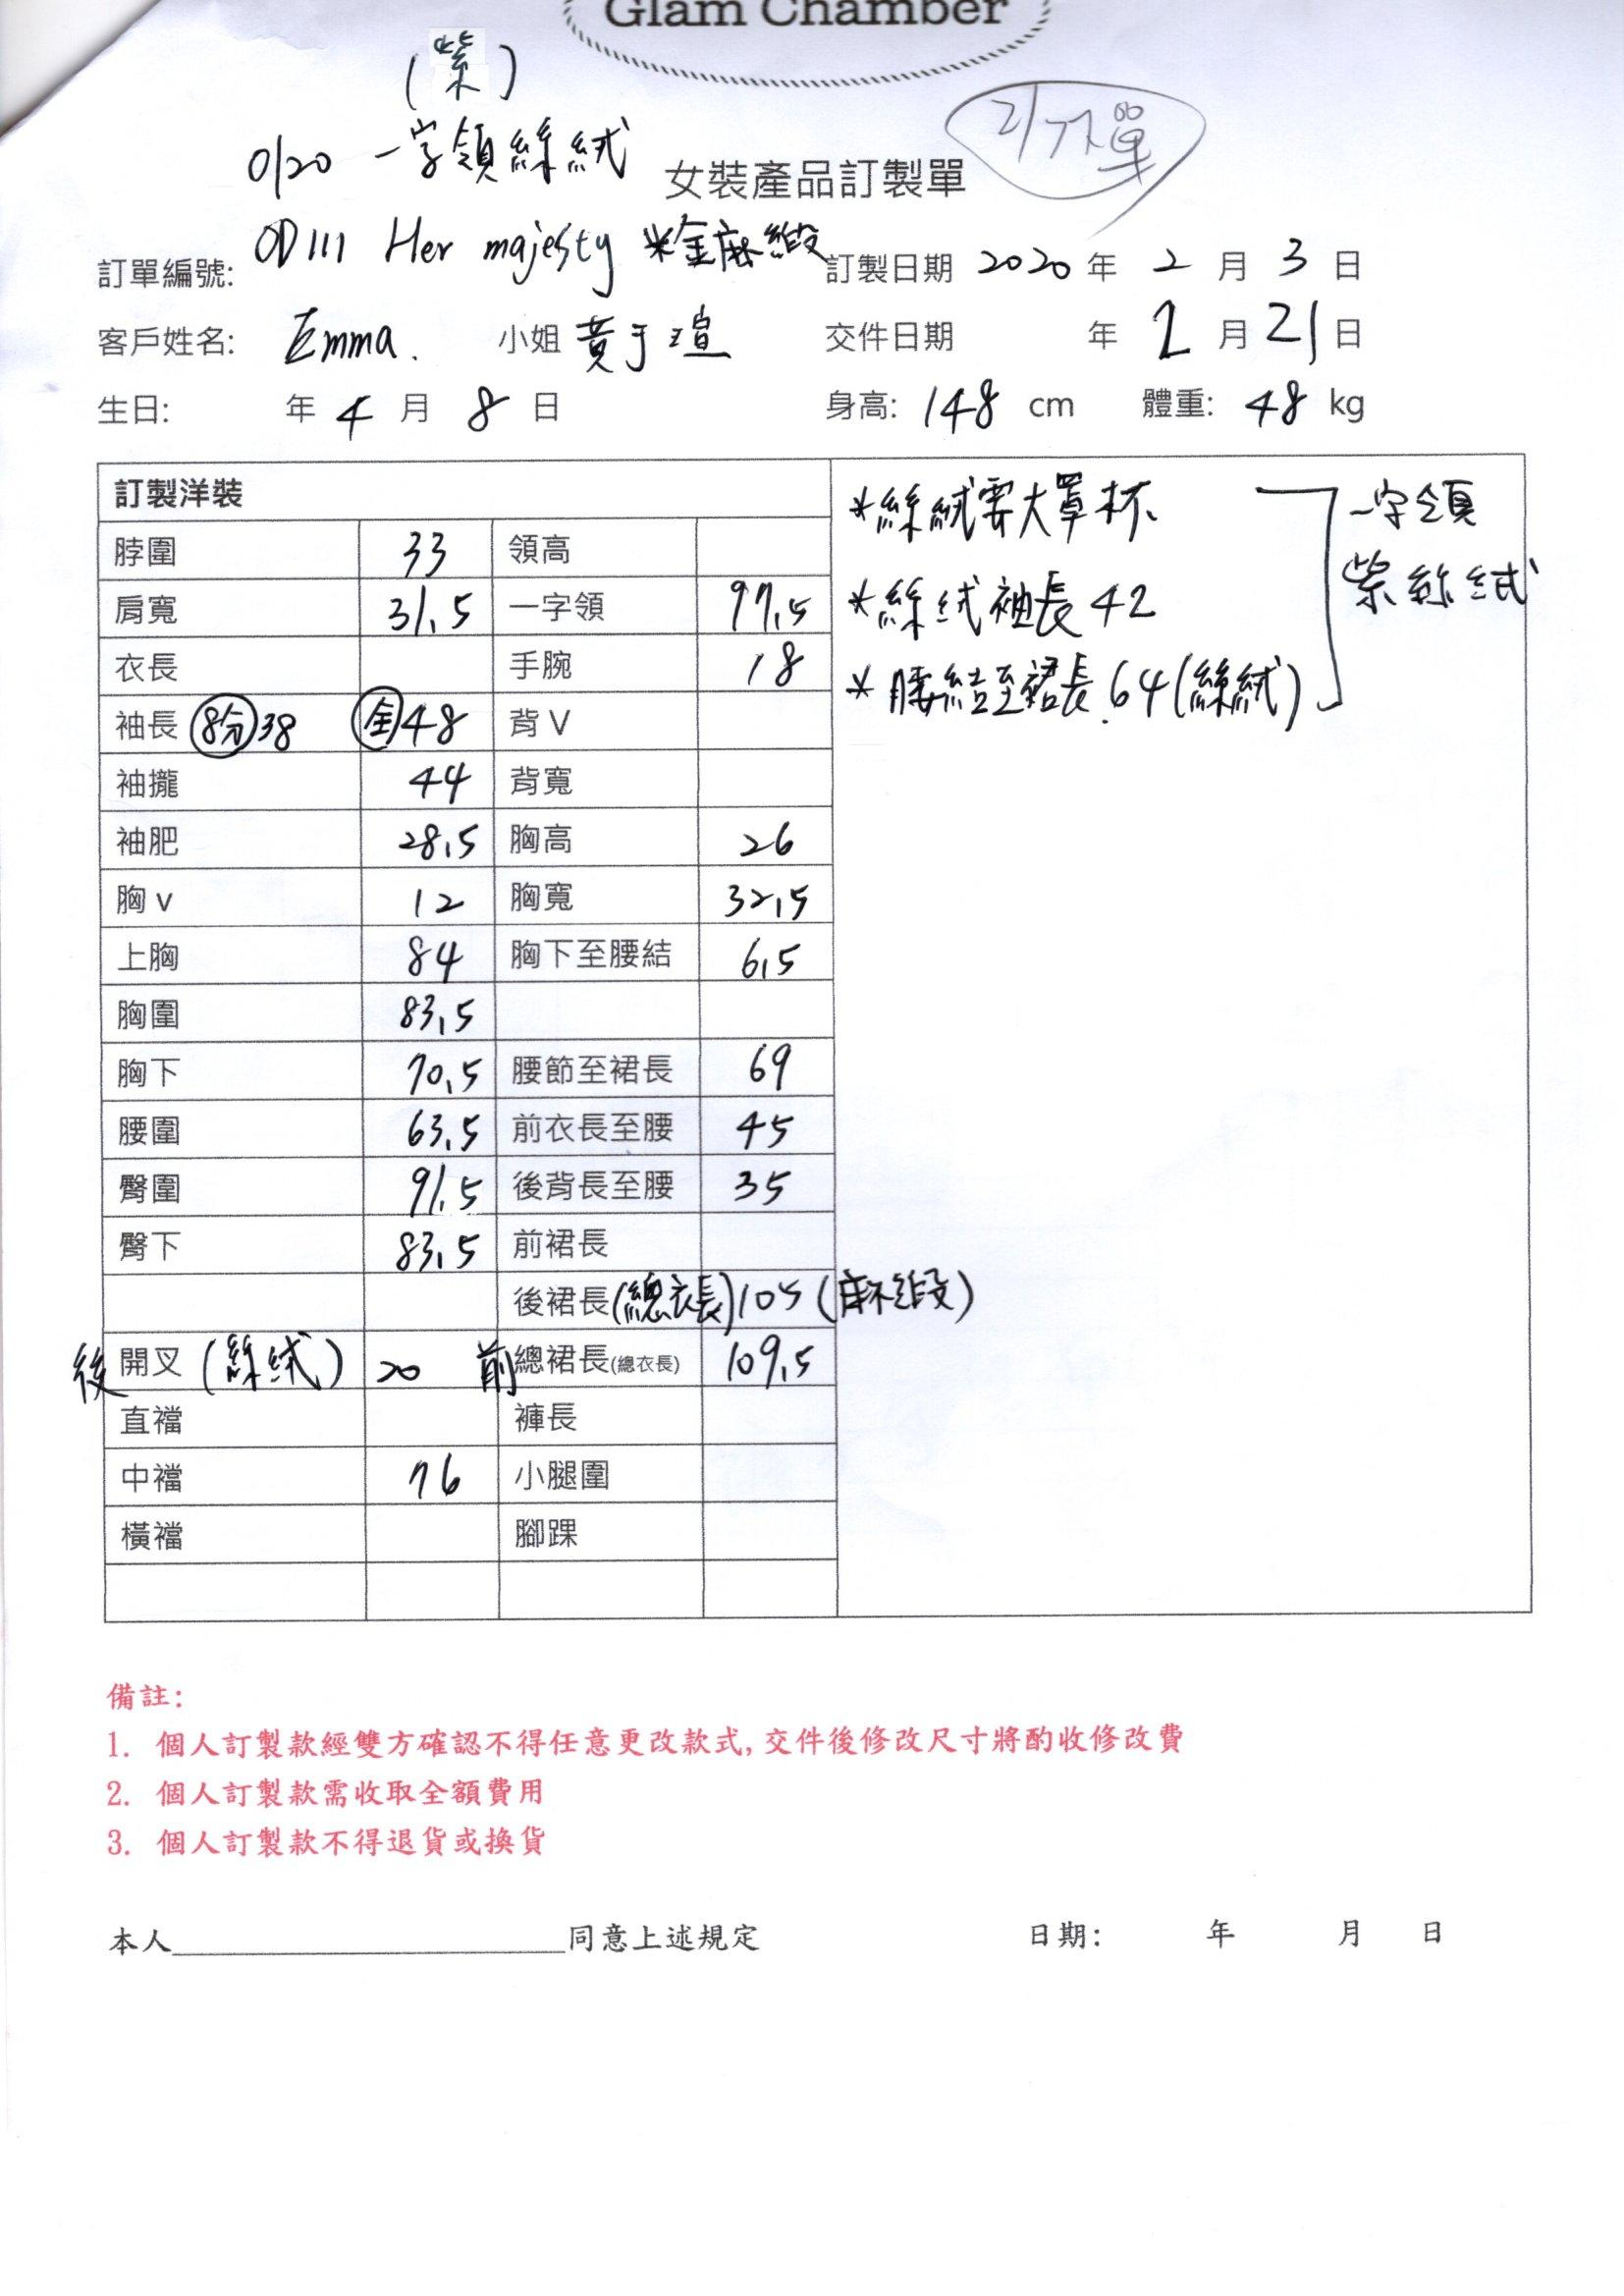 Glam Chamber
(紫)
0120 一字領絲絨
女裝產品訂製單
2/7下單
訂單編號: OD111 Her majesty *金麻緞
訂製日期 2020 年 2 月 3 日
客戶姓名: Emma. 小姐 黃于瑄
交件日期 年 2 月 21 日
生日: 年 4 月 8 日
身高: 148 cm 體重: 48 kg
訂製洋裝
脖圍 33 領高
肩寬 31.5 一字領 97.5
衣長 手腕 18
袖長 (8分) 38 (全) 48 背V
袖攏 44 背寬
袖肥 28.5 胸高 26
胸v 12 胸寬 32.5
上胸 84 胸下至腰結 6.5
胸圍 83.5
胸下 70.5 腰節至裙長 69
腰圍 63.5 前衣長至腰 45
臀圍 91.5 後背長至腰 35
臀下 83.5 前裙長
後裙長 (總衣長) 105 (麻緞)
後 開叉 (絲絨) 20 前 總裙長(總衣長) 109.5
直襠 褲長
中襠 76 小腿圍
橫襠 腳踝
*絲絨要大罩杯
*絲絨袖長 42
*腰結至裙長 64 (絲絨)
一字領
紫絲絨
備註:
1. 個人訂製款經雙方確認不得任意更改款式, 交件後修改尺寸將酌收修改費
2. 個人訂製款需收取全額費用
3. 個人訂製款不得退貨或換貨
本人 同意上述規定 日期: 年 月 日